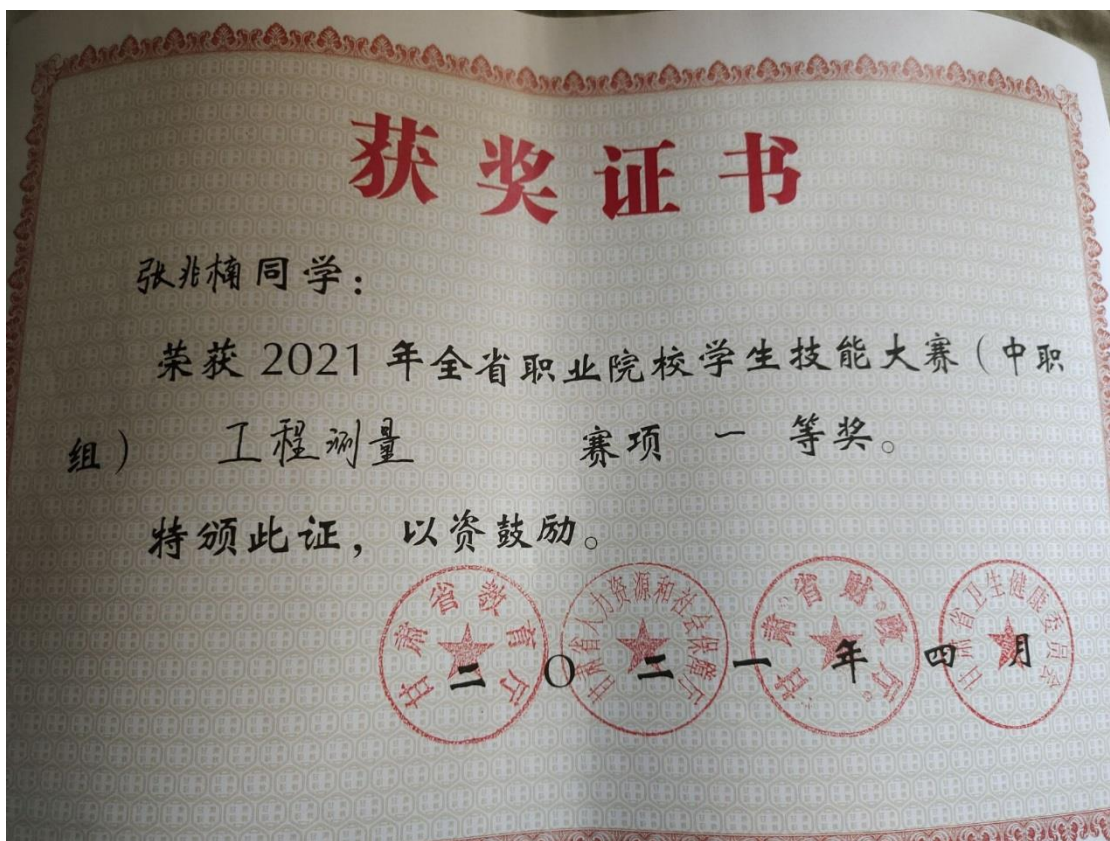 获奖证书
张兆楠同学:
荣获 2021 年全省职业院校学生技能大赛(中职
组) 工程测量 赛项 一 等奖。
特颁此证,以资鼓励。
甘肃省教育厅
甘肃省人力资源和社会保障厅
甘肃省财政厅
甘肃省卫生健康委员会
二〇二一年四月